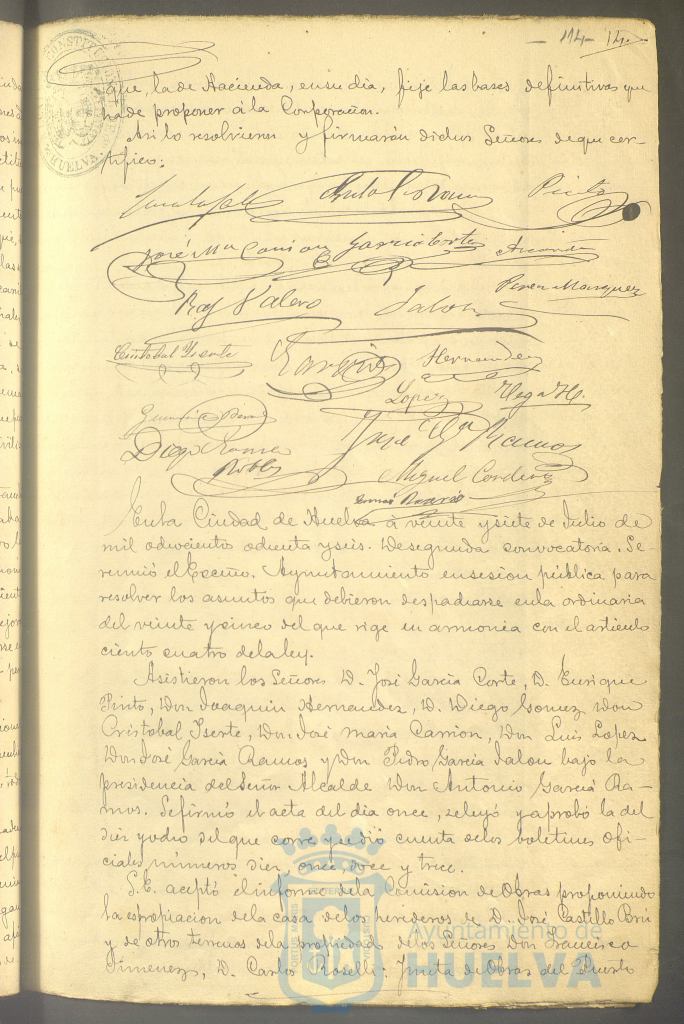 - 114 - 14 -
que, la de Hacienda, en su dia, fije las bases definitivas que
ha de proponer á la Corporacion.
Asi lo resolvieron y firmarán dichos Señores de que cer-
tifico:
Pinto
José Ma Carrion García Corte
Perez Marquez
Raf Valero Jalon
Cristobal Yserte
Hernandez
Lopez Vega H.
Diego Gomez José Ga Ramos
Robles
Miguel Cordero
En la Ciudad de Huelva á veinte y siete de Julio de
mil ochociento ochenta y seis. De segunda convocatoria. Se
reunió el Excmo. Ayuntamiento en sesion pública para
resolver los asuntos que debieron despacharse en la ordinaria
del veinte y cinco del que rige en armonia con el articulo
ciento cuatro de la ley.
Asistieron los Señores D. José Garcia Corte, D. Enrique
Pinto, Don Joaquin Hernandez, D. Diego Gomez Don
Cristobal Yserte, Don José Maria Carrion, Don Luis Lopez
Don José García Ramos y Don Pedro García Jalon bajo la
presidencia del Señor Alcalde Don Antonio García Ra-
mos. Se firmó el acta del dia once, se leyó y aprobó la del
diez y ocho del que corre y se dió cuenta de los boletines ofi-
ciales números diez, once, doce y trece.
S.E. aceptó el informe de la Comision de Obras proponiendo
la espropiacion de la casa de los herederos de D. José Castillo
y de otros terrenos de la propiedad de los Señores Don Francisco
Jimenez, D. Carlo Roselli; Junta de Obras del Puerto
Ayuntamiento de
HUELVA